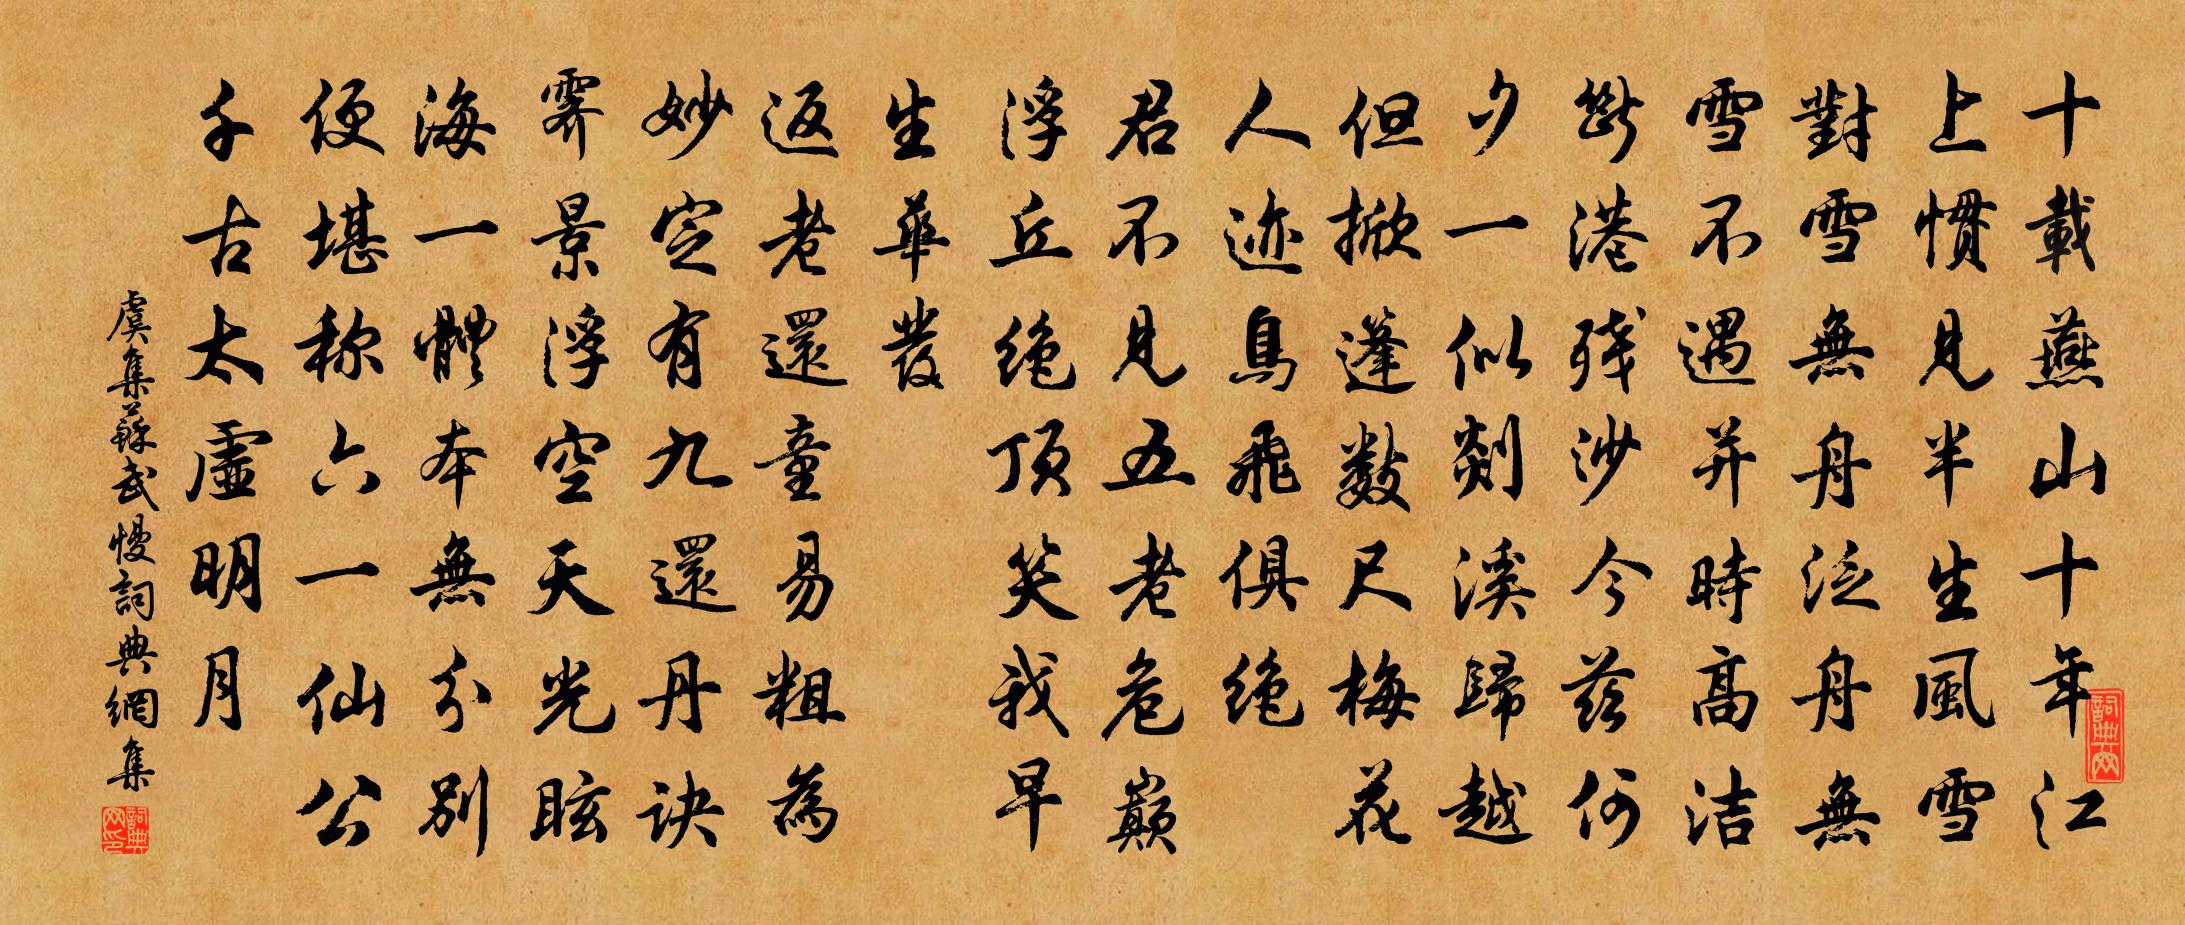 十載燕山十年江
上慣見半生風雪
對雪無舟泛舟無
雪不遇并時高洁
斷港残沙今茲何
夕一似剡溪歸越
但掀蓬數尺梅花
人迹鳥飛俱絶
君不見五老危巔
浮丘绝顶笑我早
生華發
返老還童易粗為
妙定有九還丹诀
霁景浮空天光眩
海一體本無分别
便堪称六一仙公
千古太虛明月
虞集蘇武慢詞典網集
詞典网
詞典网印